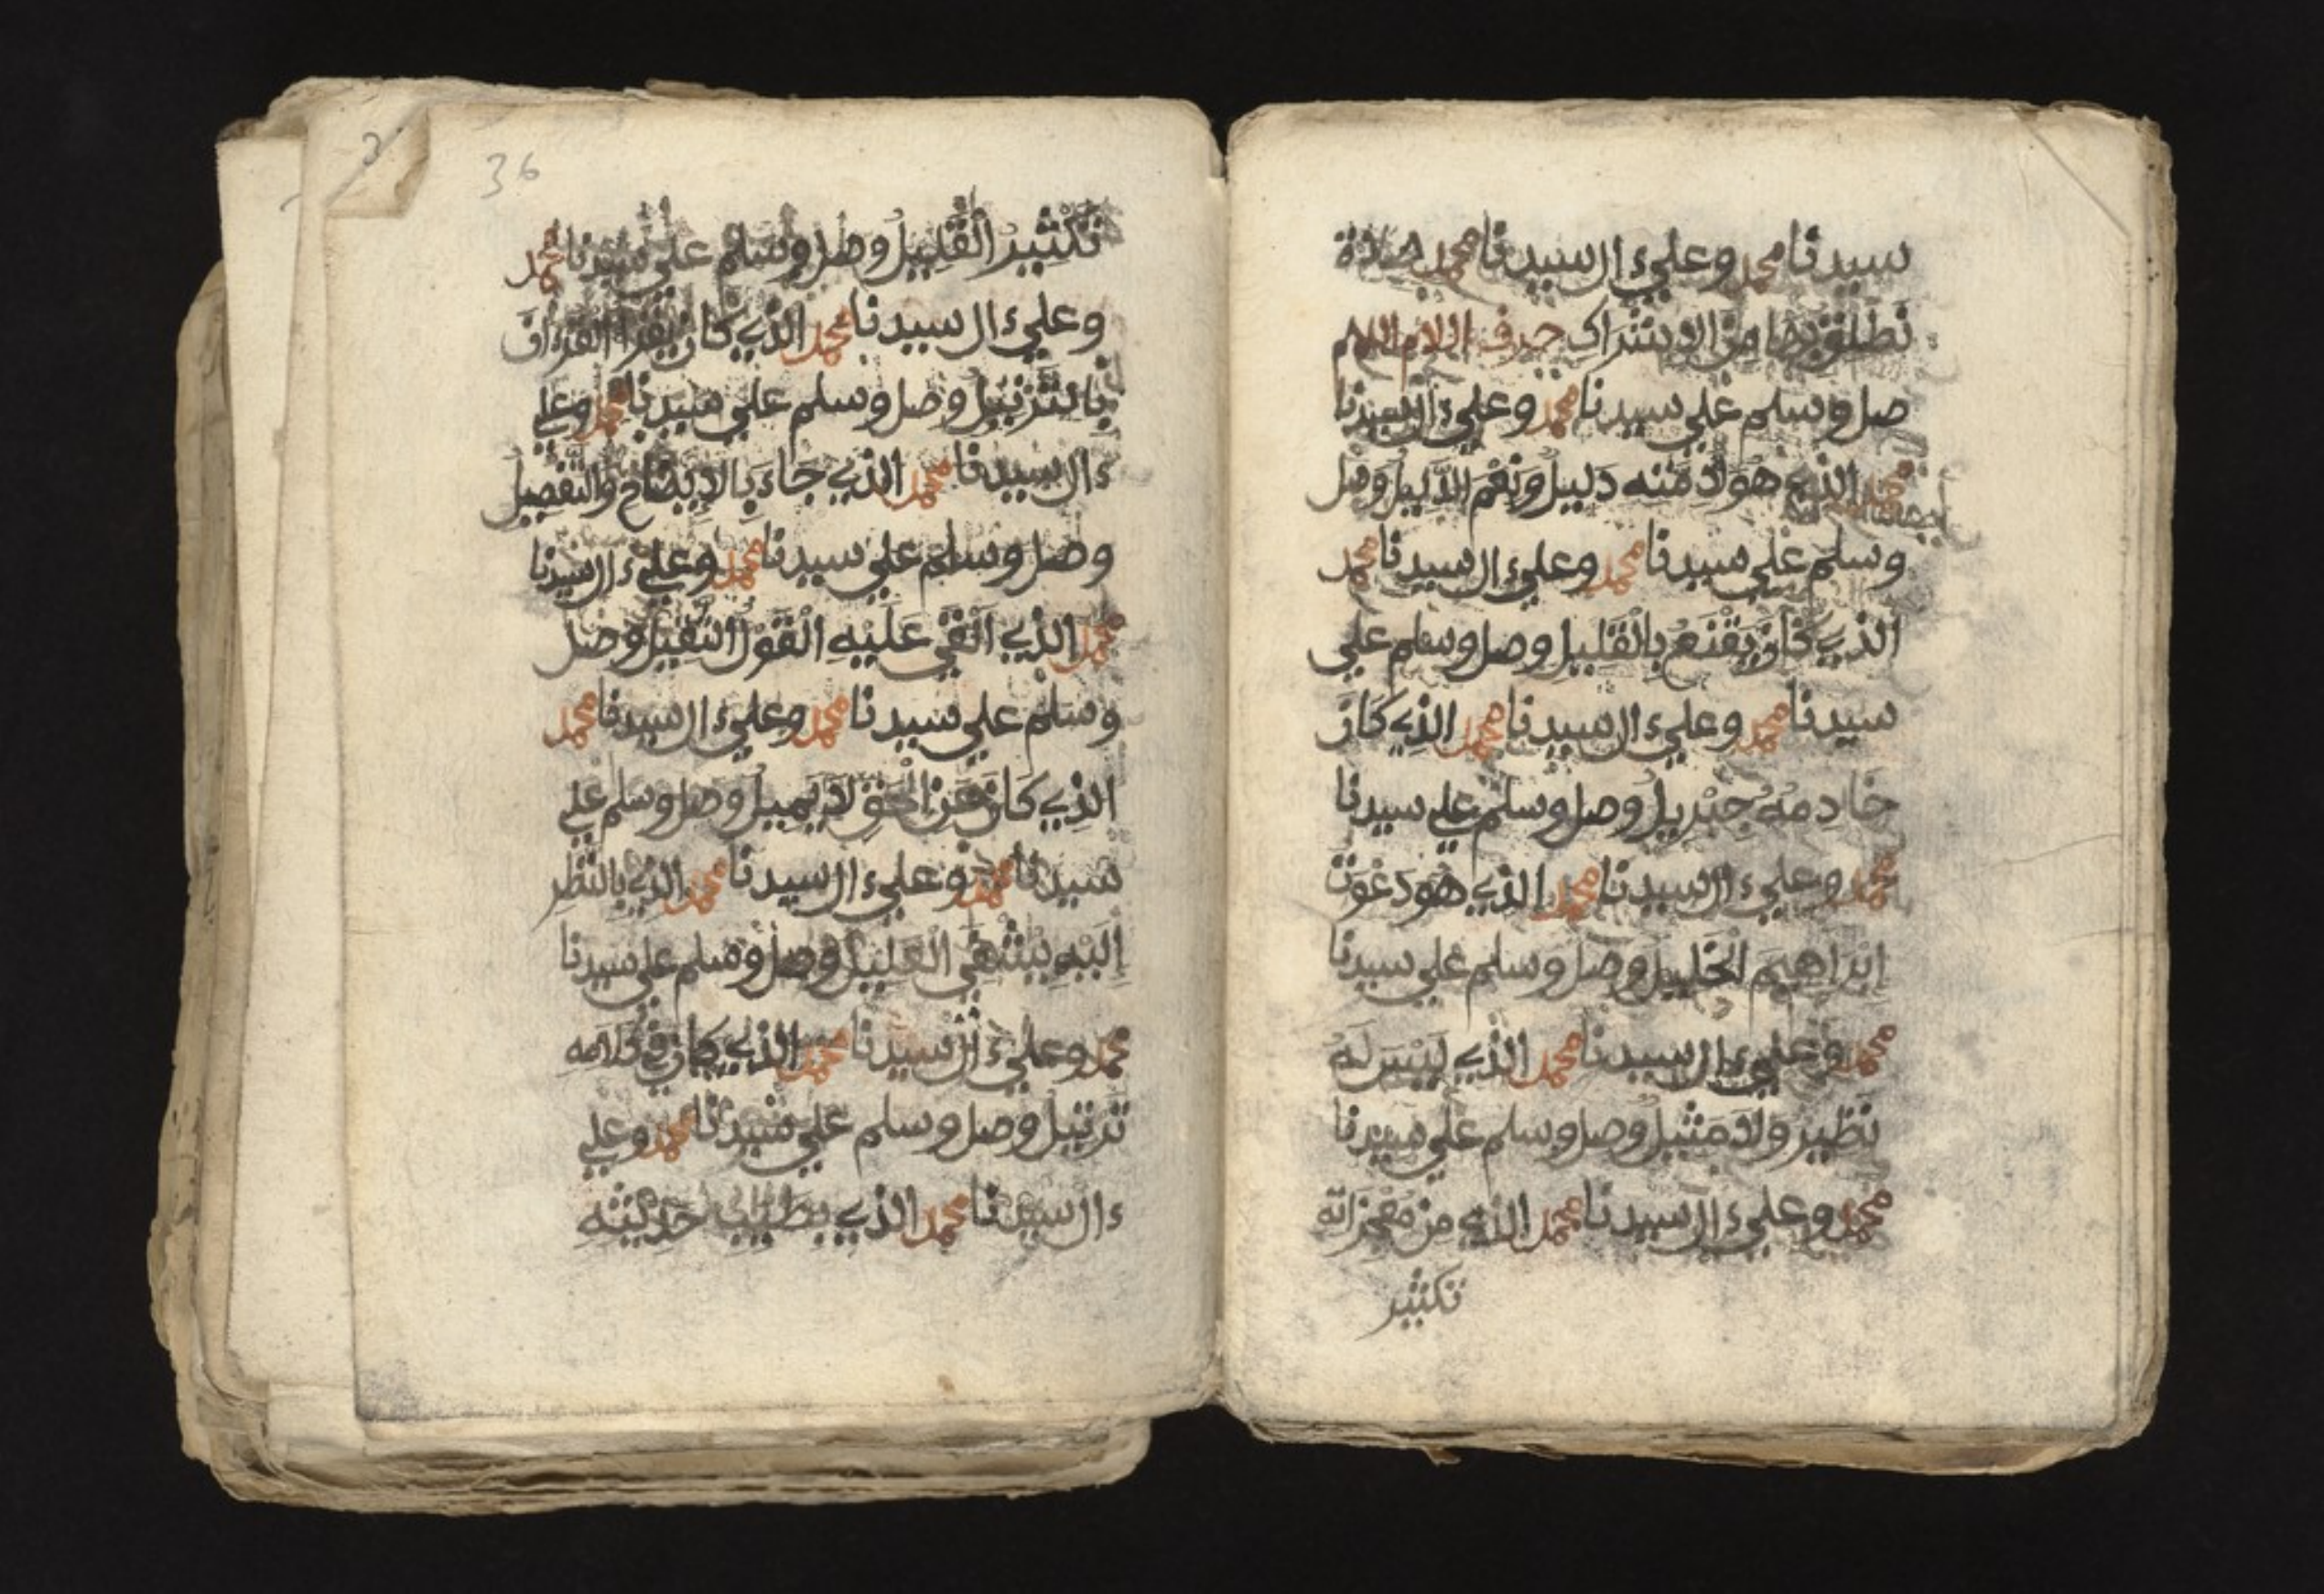 سيدنا محمد وعلى ءال سيدنا محمد صلاة
تطلقنا بها من الاشراك حرف اللام اللهم
صل وسلم على سيدنا محمد وعلى ءال سيدنا
محمد الذي هو لامته دَليل ونعم الدَّليل وصل
وسلم على سيدنا محمد وعلى ءال سيدنا محمد
الذي كان يقنع بالقليل وصل وسلم على
سيدنا محمد وعلى ءال سيدنا محمد الذي كان
خادمه جبريل وصل وسلم على سيدنا
محمد وعلى ءال سيدنا محمد الذي هو دعوة
إبراهيم الخليل وصل وسلم على سيدنا
محمد وعلى ءال سيدنا محمد الذي ليس له
نظير ولا مثيل وصل وسلم على سيدنا
محمد وعلى ءال سيدنا محمد الذي من معجزاته
تكثير
36
تكثير القليل وصل وسلم على سيدنا محمد
وعلى ءال سيدنا محمد الذي كان يقرأ القرءان
بالتنزيل وصل وسلم على سيدنا محمد وعلى
ءال سيدنا محمد الذي جاء بالإيضاح والتفصيل
وصل وسلم على سيدنا محمد وعلى ءال سيدنا
محمد الذي ألقي عليه القول الثقيل وصل
وسلم على سيدنا محمد وعلى ءال سيدنا محمد
الذي كان عن الحق لا يميل وصل وسلم على
سيدنا محمد وعلى ءال سيدنا محمد الذي بالنظر
إليه يشفى العليل وصل وسلم على سيدنا
محمد وعلى ءال سيدنا محمد الذي كان في كلامه
ترتيل وصل وسلم على سيدنا محمد وعلى
ءال سيدنا محمد الذي بطيب حديثه